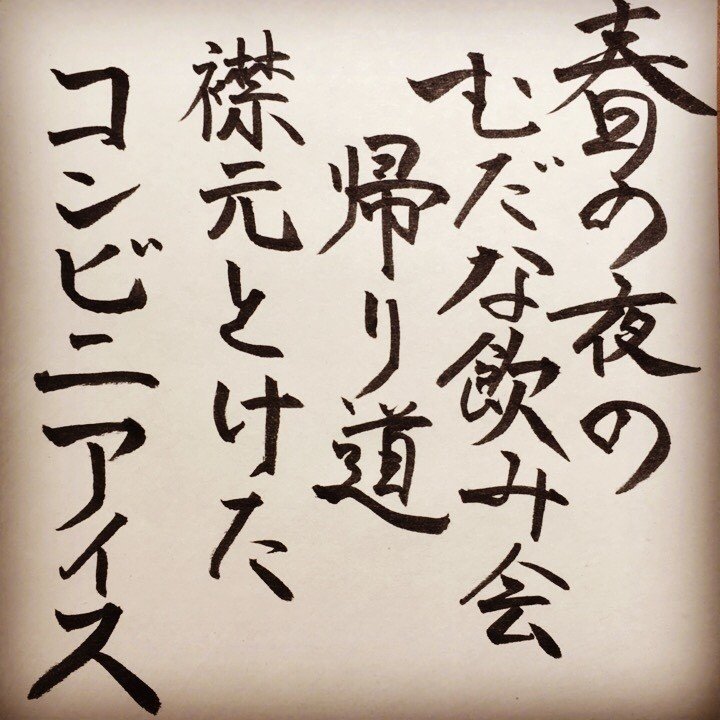 春の夜の
むだな飲み会
帰り道
襟元とけた
コンビニアイス